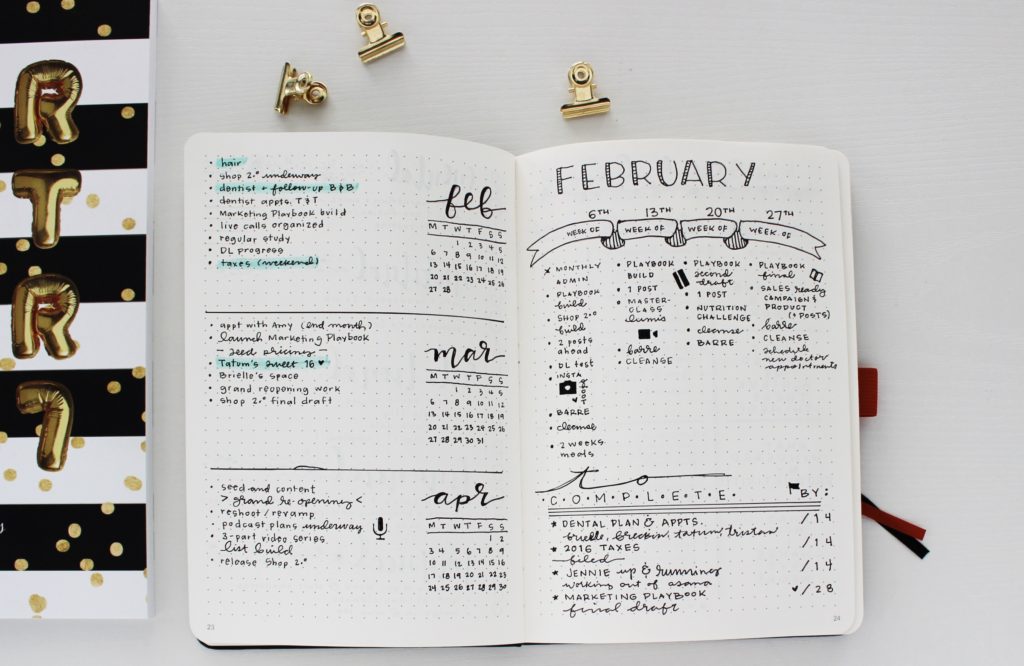 R
T
R
7
hair
shop 2.0 underway
dentist + follow-up B & B
dentist appts. T & T
Marketing Playbook build
live calls organized
regular study
DL progress
taxes (weekend)
feb
M T W T F S S
1 2 3 4 5
6 7 8 9 10 11 12
13 14 15 16 17 18 19
20 21 22 23 24 25 26
27 28
appt with Amy (end month)
launch Marketing Playbook
- seed pricing -
Tatum's sweet 16 ♥
Brielle's space
grand reopening work
shop 2.0 final draft
mar
M T W T F S S
1 2 3 4 5
6 7 8 9 10 11 12
13 14 15 16 17 18 19
20 21 22 23 24 25 26
27 28 29 30 31
seed and content
> grand re-opening <
reshoot / revamp
podcast plans underway
3-part video series
list build
release shop 2.0
apr
M T W T F S S
1 2
3 4 5 6 7 8 9
10 11 12 13 14 15 16
17 18 19 20 21 22 23
24 25 26 27 28 29 30
23
FEBRUARY
6TH 13TH 20TH 27TH
WEEK OF WEEK OF WEEK OF WEEK OF
x MONTHLY
ADMIN
PLAYBOOK
build
SHOP 2.0
build
2 posts
ahead
DL test
INSTA
BARRE
cleanse
2 weeks
meals
PLAYBOOK
BUILD
1 POST
MASTER-
CLASS
lumis
barre
CLEANSE
PLAYBOOK
second
draft
1 POST
NUTRITION
CHALLENGE
cleanse
BARRE
PLAYBOOK
final
SALES ready
CAMPAIGN &
PRODUCT
(+ POSTS)
barre
CLEANSE
schedule
new doctor
appointments
to
C·O·M·P·L·E·T·E· BY:
★ DENTAL PLAN & APPTS. /14
brielle, breckin, tatum, tristan
★ 2016 TAXES /14
filed
★ JENNIE up & running /14
working out of asana
★ MARKETING PLAYBOOK ♥/28
final draft
24